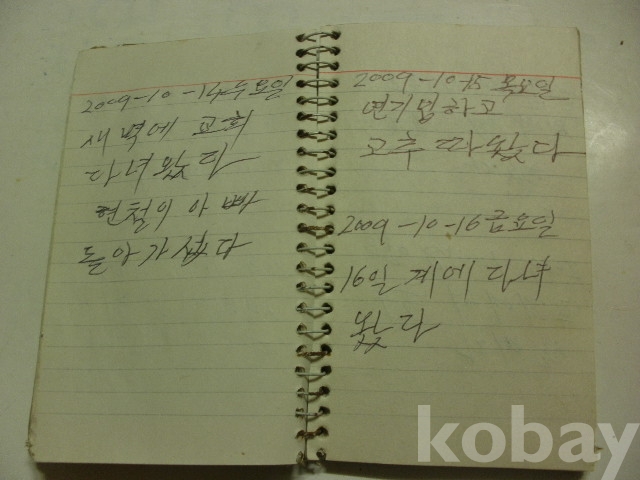 2009-10-14수요일
새벽에 교회
다녀왔다
현철이 아빠
돌아가셨다
2009-10-15 목요일
하고
고추 따왔다
2009-10-16금요일
16일 계에 다녀
왔다
kobay